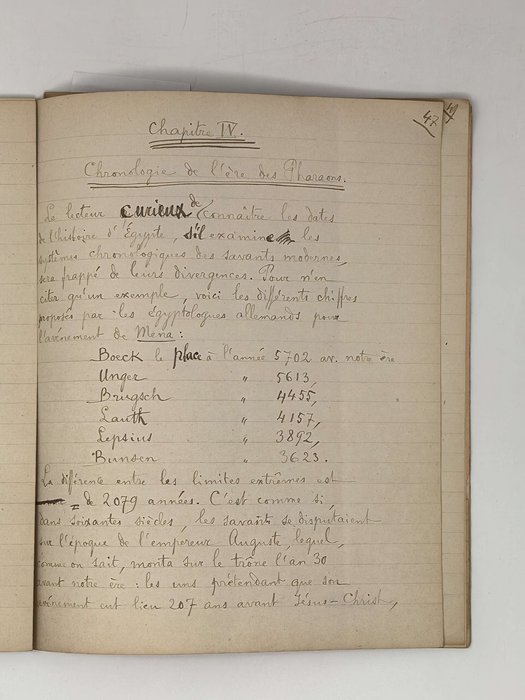 47
Chapitre IV.
Chronologie de l'ère des Pharaons.
Le lecteur curieux de connaître les dates
de l'histoire d'Égypte, s'il examine les
systèmes chronologiques des savants modernes,
sera frappé de leurs divergences. Pour n'en
citer qu'un exemple, voici les différents chiffres
proposés par les égyptologues allemands pour
l'avénement de Mena :
Boeck le place à l'année 5702 av. notre ère
Unger " 5613,
Brugsch " 4455,
Lauth " 4157,
Lepsius " 3892,
Bunsen " 3623.
La différence entre les limites extrêmes est
de 2079 années. C'est comme si,
dans soixantes siècles, les savants se disputaient
sur l'époque de l'empereur Auguste, lequel,
comme on sait, monta sur le trône l'an 30
avant notre ère : les uns prétendant que son
avénement eut lieu 207 ans avant Jésus-Christ,